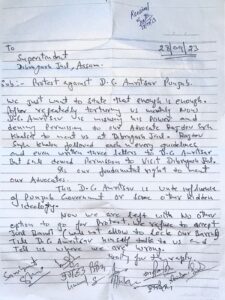 Received
To
Superintendent
Dibrugarh Jail, Assam.
28/09/23
Sub:- Protest against D.C Amritsar Punjab.
We just want to state that enough is enough.
After repeatedly torturing us mentally Now
D.C. Amritsar is misusing his Power and
denying Permission to our Advocate Rajdev Singh
Khalsa to meet us at Dibrugarh Jail. Rajdev
Singh Khalsa followed each & every guidelines
and even written three letters to D.C Amritsar
But he denied Permission to Visit Dibrugarh Jail.
It's our fundamental right to meet
our Advocate.
This D.C Amritsar is under influence
of Punjab Government or some other hidden
ideology.
Now we are left with No other
option to go for Protest. We refuse to accept
food and will not allow to lock our Barrack
Till D.C Amritsar himself talk to us and
Tell us where we are wrong.
Wait for the reply